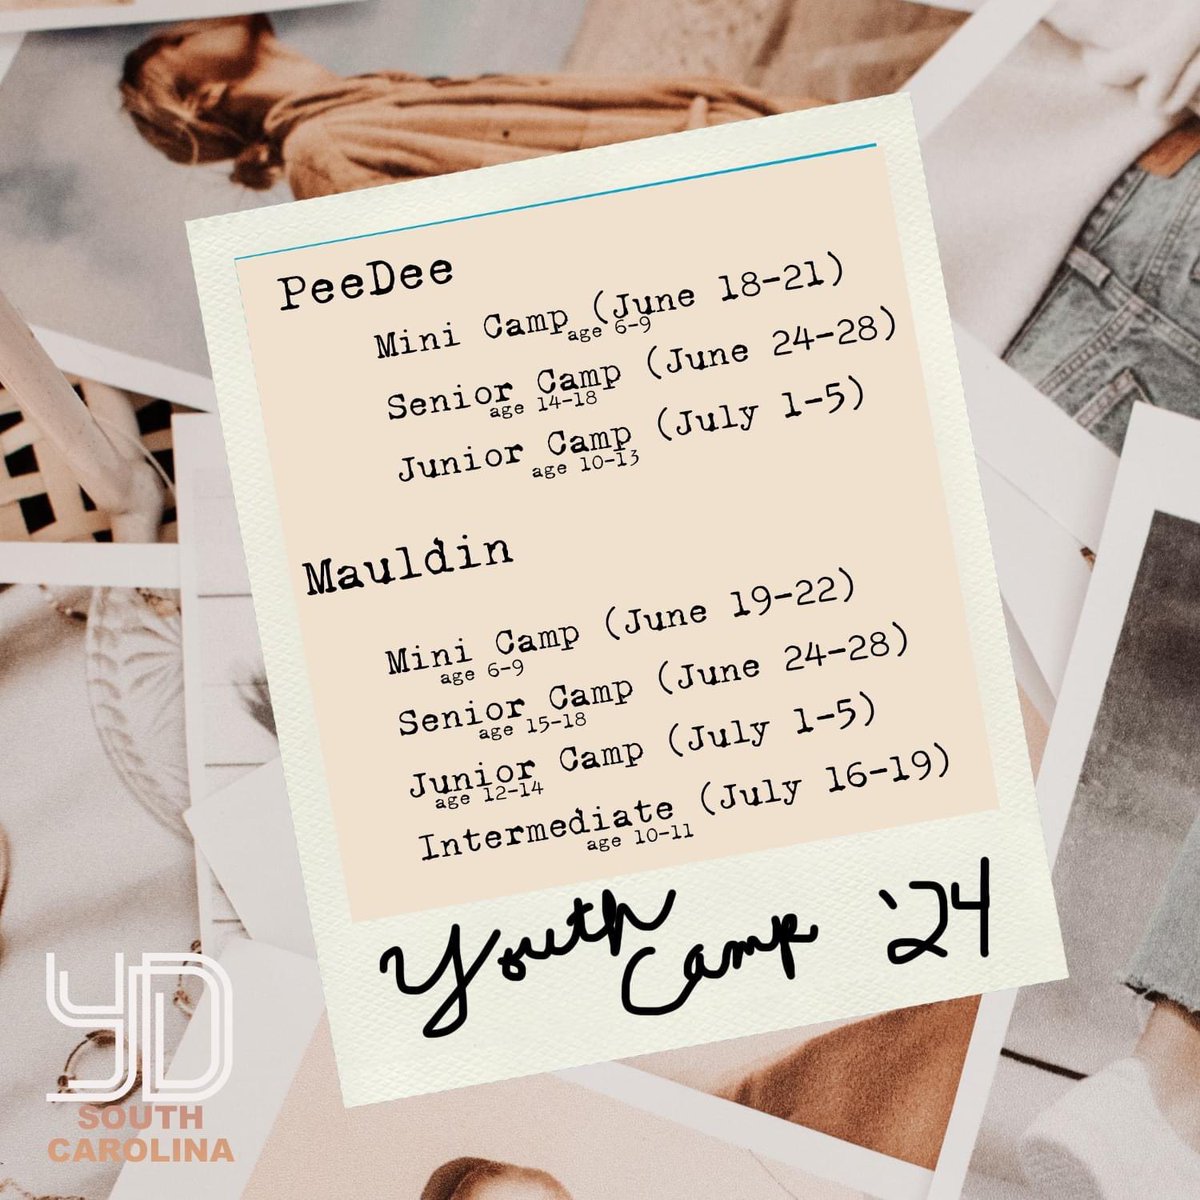 PeeDee
Mini Camp (June 18-21)
age 6-9
Senior Camp (June 24-28)
age 14-18
Junior Camp (July 1-5)
age 10-13
Mauldin
Mini Camp (June 19-22)
age 6-9
Senior Camp (June 24-28)
age 15-18
Junior Camp (July 1-5)
age 12-14
Intermediate (July 16-19)
age 10-11
Youth
Camp '24
YD
SOUTH
CAROLINA